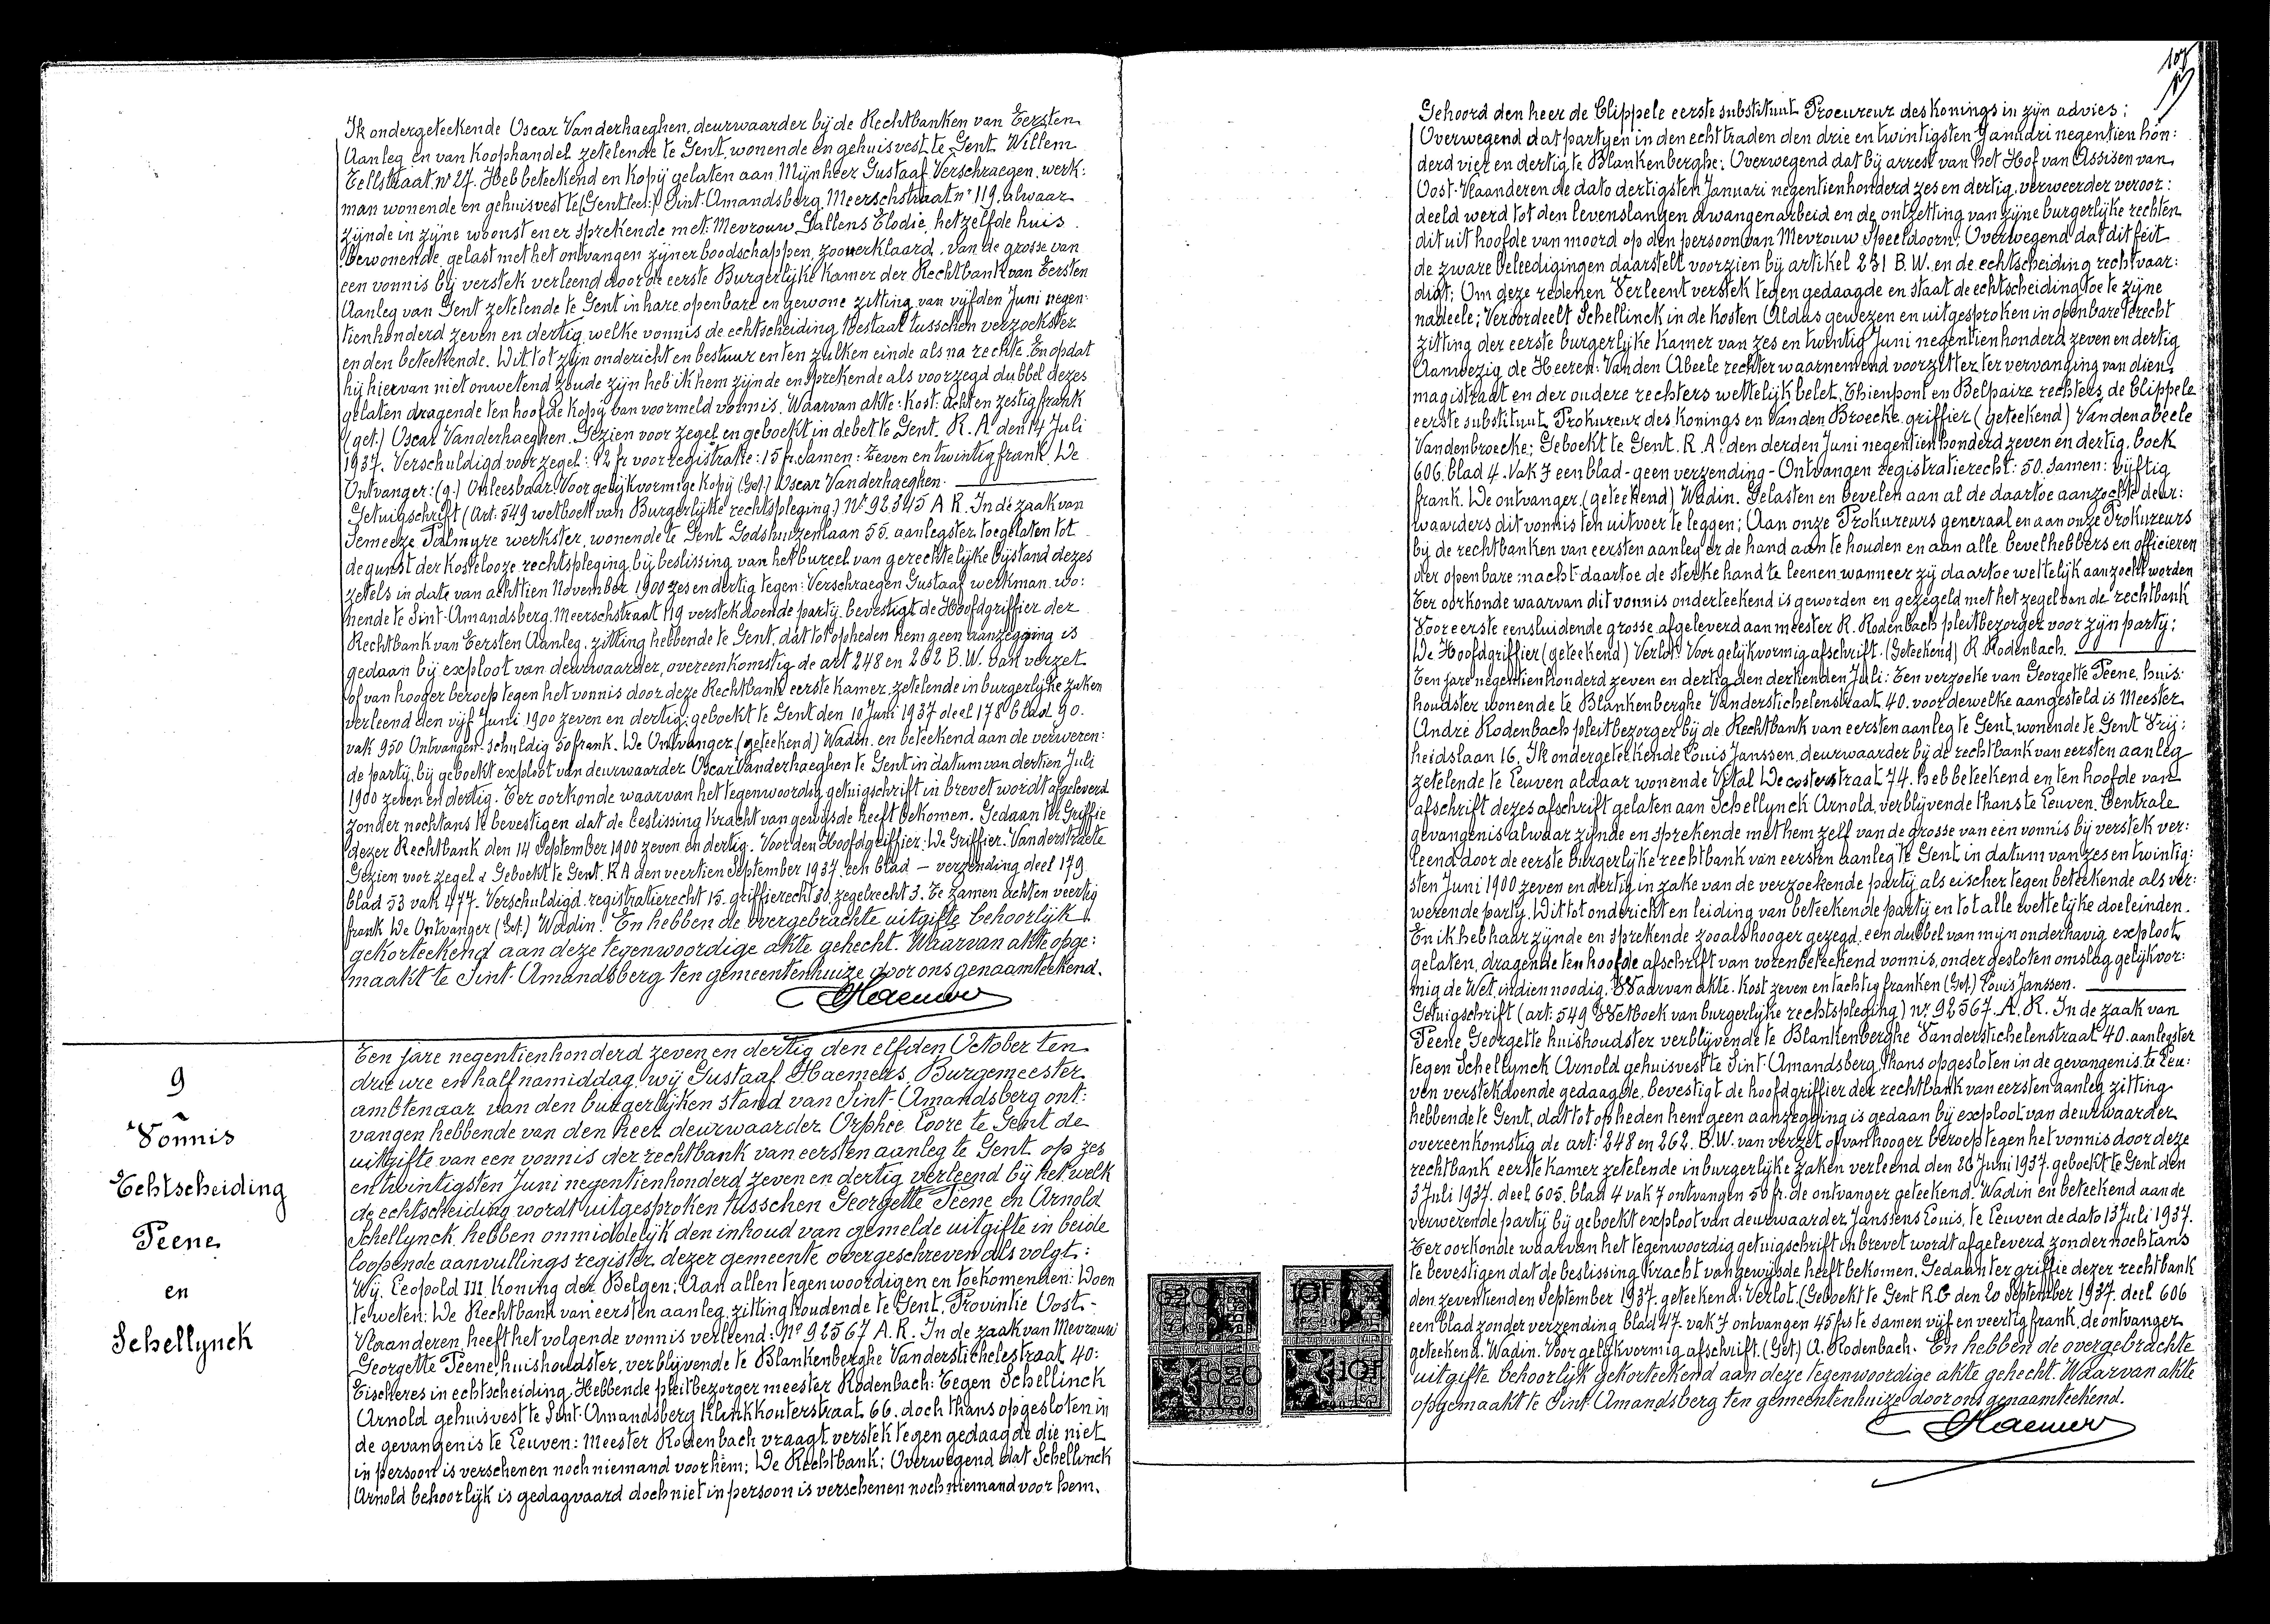 Ik ondergeteekende Oscar Vanderhaeghen, deurwaarder bij de Rechtbanken van Eersten
Aanleg en van Koophandel zetelende te Gent, wonende en gehuisvest te Gent Willem
Tellstraat nr 27. Heb beteekend en kopij gelaten aan Mijnheer Gustaaf Verschraegen, werk:
man wonende en gehuisvest te (Gent) Sint-Amandsberg, Meerschstraat nr 119, alwaar
zijnde in zijne woonst en er sprekende met: Mevrouw Gallens Elodie, hetzelfde huis
bewonende, gelast met het ontvangen zijner boodschappen, zoo verklaard, van de grosse van
een vonnis bij verstek verleend door de eerste Burgerlijke Kamer der Rechtbank van Eersten
Aanleg van Gent zetelende te Gent in hare openbare en gewone zitting van vijfden Juni negen:
tienhonderd zeven en dertig, welke vonnis de echtscheiding toestaat tusschen verzoekster
en den beteekende. Dit tot zijn ondericht en bestuur en ten zulken einde als na rechte. En opdat
hij hiervan niet onwetend zoude zijn heb ik hem zijnde en sprekende als voorzegd dubbel dezes
gelaten dragende ten hoofde kopij van voormeld vonnis. Waarvan akte: Kost: acht en zestig frank
(get.) Oscar Vanderhaeghen. Gezien voor zegel en geboekt in debet te Gent. R. A. den 14 Juli
1937. Verschuldigd voor zegel: 12 fr voor registratie: 15 fr. Samen: zeven en twintig frank. De
Ontvanger: (g.) Onleesbaar. Voor gelijkvormige Kopij (Get.) Oscar Vanderhaeghen.
Getuigschrift (Art. 549 wetboek van Burgerlijke rechtspleging) Nr 92345 A R. In de zaak van
Semeeze Palmyre werkster, wonende te Gent Godshuizenlaan 55. aanlegster toegelaten tot
de gunst der Kostelooze rechtspleging bij beslissing van het bureel van gerechtelijke bijstand dezes
zetels in date van achttien November 1900 zes en dertig tegen: Verschraegen Gustaaf werkman, wo:
nende te Sint-Amandsberg, Meerschstraat 119 verstekdoende partij, bevestigt de Hoofdgriffier der
Rechtbank van Eersten Aanleg, zitting hebbende te Gent, dat tot opheden hem geen aanzegging is
gedaan bij exploot van deurwaarder, overeenkomstig de art 248 en 262 B.W. van verzet
of van hooger beroep tegen het vonnis door deze Rechtbank eerste kamer zetelende in burgerlijke zaken
verleend den vijf Juni 1900 zeven en dertig, geboekt te Gent den 10 Juni 1937 deel 178 blad 90.
vak 950 Ontvangen-schuldig 50 frank. De Ontvanger (geteekend) Wadin. en beteekend aan de verweren:
de partij, bij geboekt exploot van deurwaarder Oscar Vanderhaeghen te Gent in datum van dertien Juli
1900 zeven en dertig. Ter oorkonde waarvan het tegenwoordig getuigschrift in brevet wordt afgeleverd
zonder nochtans te bevestigen dat de beslissing kracht van gewijsde heeft bekomen. Gedaan ter Griffie
dezer Rechtbank den 14 September 1900 zeven en dertig. Voor den Hoofdgriffier: De Griffier. Vanderstraete
Gezien voor zegel & Geboekt te Gent. R A den veertien September 1937. een blad — verzending deel 179
blad 53 vak 477. Verschuldigd registratierecht 15. griffierecht 30. zegelrecht 3. Te zamen achten veertig
frank De Ontvanger (Get.) Wadin. En hebben de overgebrachte uitgifte behoorlijk
gekorteekend aan deze tegenwoordige akte gehecht. Waarvan akte opge:
maakt te Sint-Amandsberg ten gemeentenhuize door ons genaamteekend.
9
Vonnis
Echtscheiding
Peene
en
Schellynck
Ten jare negentienhonderd zeven en dertig den elfden October ten
drie ure en half namiddag, wij Gustaaf Haemers, Burgemeester
ambtenaar van den burgerlijken stand van Sint-Amandsberg ont:
vangen hebbende van den heer deurwaarder Orphee Loore te Gent de
uitgifte van een vonnis der rechtbank van eersten aanleg te Gent op zes
en twintigsten Juni negentienhonderd zeven en dertig verleend bij het welk
de echtscheiding wordt uitgesproken tusschen Georgette Peene en Arnold
Schellynck, hebben onmiddelijk den inhoud van gemelde uitgifte in beide
loopende aanvullings register dezer gemeente overgeschreven als volgt:
Wij, Leopold III Koning der Belgen; Aan allen tegenwoordigen en toekomenden: Doen
te weten: De Rechtbank van eersten aanleg, zitting houdende te Gent, Provintie Oost-
Vlaanderen, heeft het volgende vonnis verleend: Nº 92567 A.R. In de zaak van Mevrouw
Georgette Peene, huishoudster, verblijvende te Blankenberghe Vanderstichelestraat 40:
Eischeres in echtscheiding. Hebbende pleitbezorger meester Rodenbach: Tegen Schellinck
Arnold gehuisvest te Sint-Amandsberg Klinkkouterstraat 66. doch thans opgesloten in
de gevangenis te Leuven: Meester Rodenbach vraagt verstek tegen gedaagde die niet
in persoon is verschenen noch niemand voor hem; De Rechtbank; Overwegend dat Schellynck
Arnold behoorlijk is gedagvaard doch niet in persoon is verschenen noch niemand voor hem.
107
Gehoord den heer de Clippele eerste substituut Procureur des Konings in zijn advies;
Overwegend dat partijen in den echt traden den drie en twintigsten Januari negentien hon:
derd vier en dertig te Blankenberghe; Overwegend dat bij arrest van het Hof van Assisen van
Oost-Vlaanderen de dato dertigsten Januari negentienhonderd zes en dertig, verweerder veroor:
deeld werd tot den levenslangen dwangenarbeid en de ontzetting van zijne burgerlijke rechten
dit uit hoofde van moord op den persoon van Mevrouw Speeldoorn; Overwegend dat dit feit
de zware beleedigingen daarstelt voorzien bij artikel 231 B.W. en de echtscheiding rechtvaar:
digt; Om deze redenen Verleent verstek tegen gedaagde en staat de echtscheiding toe te zijne
nadeele; Veroordeelt Schellinck in de kosten Aldus gewezen en uitgesproken in openbare terecht
zitting der eerste burgerlijke Kamer van zes en twintig Juni negentienhonderd zeven en dertig
Aanwezig de Heeren: Van den Abeele rechter waarnemend voorzitter ter vervanging van dien
magistraat en der oudere rechters wettelijk belet, Thienpont en Belpaire rechters, de Clippele
eerste substituut Prokureur des Konings en Vanden Broecke griffier (geteekend) Vandenabeele
Vandenbroecke; Geboekt te Gent. R.A. den derden Juni negentienhonderd zeven en dertig. boek
606. blad 4. Vak 7 een blad - geen verzending - Ontvangen registratierecht: 50. Samen: vijftig
frank. De ontvanger, (geteekend) Wadin. Gelasten en bevelen aan al de daartoe aanzochte deur:
waarders dit vonnis ten uitvoer te leggen; Aan onze Prokureurs generaal en aan onze Prokureurs
bij de rechtbanken van eersten aanleg er de hand aan te houden en aan alle bevelhebbers en officieren
der openbare macht daartoe de sterke hand te leenen wanneer zij daartoe wettelijk aanzocht worden
Ter oorkonde waarvan dit vonnis onderteekend is geworden en gezegeld met het zegel van de rechtbank
Voor eerste eensluidende grosse, afgeleverd aan meester R. Rodenbach pleitbezorger voor zijn partij;
De Hoofdgriffier (geteekend) Verlot. Voor gelijkvormig afschrift. (Geteekend) R. Rodenbach.
Ten jare negentienhonderd zeven en dertig den dertienden Juli: Ten verzoeke van Georgette Peene, huis:
houdster wonende te Blankenberghe Vanderstichelenstraat 40. voor dewelke aangesteld is Meester
André Rodenbach pleitbezorger bij de Rechtbank van eersten aanleg te Gent, wonende te Gent Vrij:
heidslaan 16. Ik ondergeteekende Louis Janssen, deurwaarder bij de rechtbank van eersten aanleg
zetelende te Leuven aldaar wonende Vital Decosterstraat 74. heb beteekend en ten hoofde van
afschrift dezes afschrift gelaten aan Schellynck Arnold, verblijvende thans te Leuven. Centrale
gevangenis alwaar zijnde en sprekende met hem zelf van de grosse van een vonnis bij verstek ver:
leend door de eerste burgerlijke rechtbank van eersten aanleg te Gent in datum van zes en twintig:
sten Juni 1900 zeven en dertig in zake van de verzoekende partij als eischer tegen beteekende als ver:
werende partij. Dit tot ondericht en leiding van beteekende partij en tot alle wettelijke doeleinden.
En ik heb haar zijnde en sprekende zooals hooger gezegd, een dubbel van mijn onderhavig exploot
gelaten, dragende ten hoofde afschrift van vorenbeteekend vonnis, onder gesloten omslag gelijkvor:
mig de Wet, indien noodig. Waarvan akte. Kost zeven en tachtig franken (Get.) Louis Janssen.
Getuigschrift (art: 549 Wetboek van burgerlijke rechtspleging) nr 92567. A. R. In de zaak van
Peene Georgette huishoudster verblijvende te Blankenberghe Vanderstichelenstraat 40. aanlegster
tegen Schellynck Arnold gehuisvest te Sint-Amandsberg, thans opgesloten in de gevangenis te Leu:
ven verstekdoende gedaagde, bevestigt de hoofdgriffier der rechtbank van eersten aanleg zitting
hebbende te Gent, dat tot opheden hem geen aanzegging is gedaan bij exploot van deurwaarder
overeenkomstig de art: 248 en 262. B.W. van verzet of van hooger beroep tegen het vonnis door deze
rechtbank eerste kamer zetelende in burgerlijke zaken verleend den 26 Juni 1937. geboekt te Gent den
3 Juli 1937. deel 605. blad 4 vak 7 ontvangen 50 fr. de ontvanger geteekend. Wadin en beteekend aan de
verwerende partij bij geboekt exploot van deurwaarder Janssens Louis, te Leuven de dato 13 Juli 1937.
Ter oorkonde waarvan het tegenwoordig getuigschrift in brevet wordt afgeleverd zonder nochtans
te bevestigen dat de beslissing kracht van gewijsde heeft bekomen. Gedaan ter griffie dezer rechtbank
den zeventienden September 1937. geteekend: Verlot. (Geboekt te Gent R.G den 20 September 1937. deel 606
een blad zonder verzending blad 47. vak 7 ontvangen 45 frs te samen vijf en veertig frank. de ontvanger
geteekend. Wadin. Voor gelijkvormig afschrift. (Get.) A. Rodenbach. En hebben de overgebrachte
uitgifte behoorlijk gekorteekend aan deze tegenwoordige akte gehecht. Waarvan akte
opgemaakt te Sint-Amandsberg ten gemeentenhuize door ons genaamteekend.
10F
10F